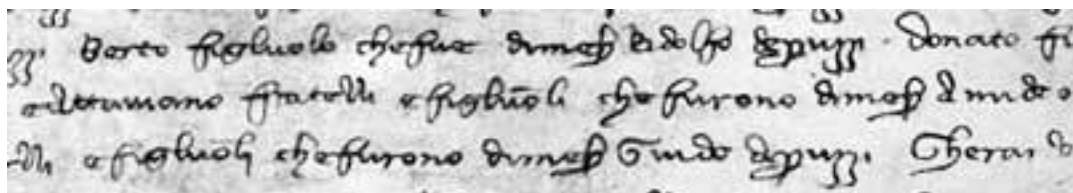 Berto figluolo che fue dimess Ridolfo de puzzi. donato fi
ottaviano fratelli e figluoli che furono dimess
lli e figluoli che furono dimess Guido de puzzi. Gherar